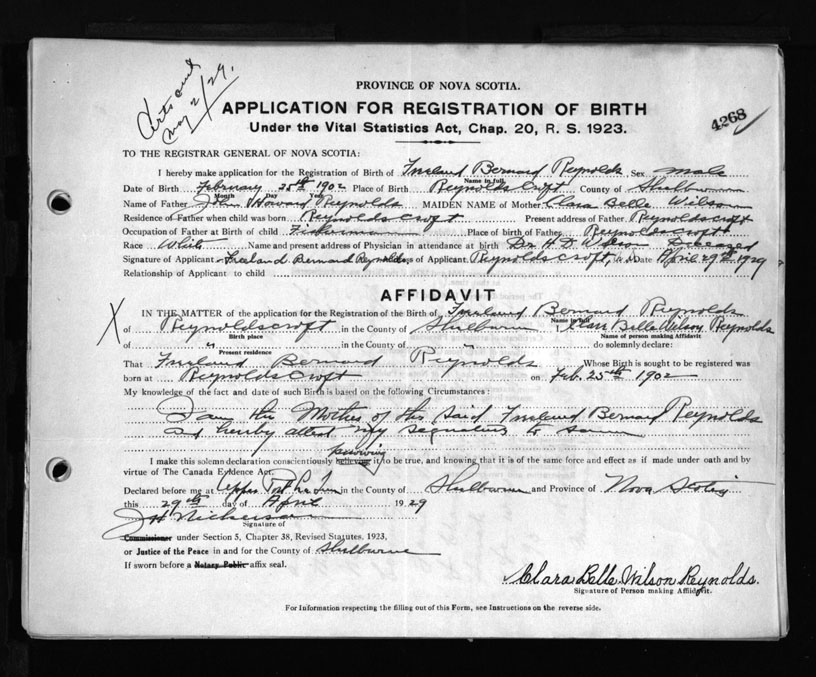 May 2/29.
4268
PROVINCE OF NOVA SCOTIA.
APPLICATION FOR REGISTRATION OF BIRTH
Under the Vital Statistics Act, Chap. 20, R. S. 1923.
TO THE REGISTRAR GENERAL OF NOVA SCOTIA:
I hereby make application for the Registration of Birth of Freeland Bernard Reynolds Sex male
Name in full
Date of Birth February 25th 1902 Place of Birth Reynoldscroft County of Shelburne
Month Day Year
Name of Father John Howard Reynolds MAIDEN NAME of Mother Clara Belle Wilson
Residence of Father when child was born Reynoldscroft Present address of Father Reynoldscroft
Occupation of Father at Birth of child Fisherman Place of birth of Father Reynoldscroft
Race White Name and present address of Physician in attendance at birth Dr. H. D. Wilson Deceased
Signature of Applicant Freeland Bernard Reynolds, s of Applicant Reynoldscroft, Date April 29th 1929
Relationship of Applicant to child
AFFIDAVIT
X IN THE MATTER of the application for the Registration of the Birth of Freeland Bernard Reynolds
Name in full
of Reynoldscroft in the County of Shelburne I Clara Belle Wilson Reynolds
Birth place Name of person making Affidavit
of " in the County of " do solemnly declare:
Present residence
That Freeland Bernard Reynolds Whose Birth is sought to be registered was
born at Reynoldscroft on Feb. 25th 1902
My knowledge of the fact and date of such Birth is based on the following Circumstances:
I am the Mother of the said Freeland Bernard Reynolds
and hereby attest my signature to same
knowing
I make this solemn declaration conscientiously believing it to be true, and knowing that it is of the same force and effect as if made under oath and by
virtue of The Canada Evidence Act.
Declared before me at Upper Port La Tour in the County of Shelburne and Province of Nova Scotia
this 29th day of April 1929
J H Nickerson
Signature of
Commissioner under Section 5, Chapter 38, Revised Statutes. 1923,
or Justice of the Peace in and for the County of Shelburne
If sworn before a Notary Public affix seal.
Clara Belle Wilson Reynolds.
Signature of Person making Affidavit.
For Information respecting the filling out of this Form, see Instructions on the reverse side.